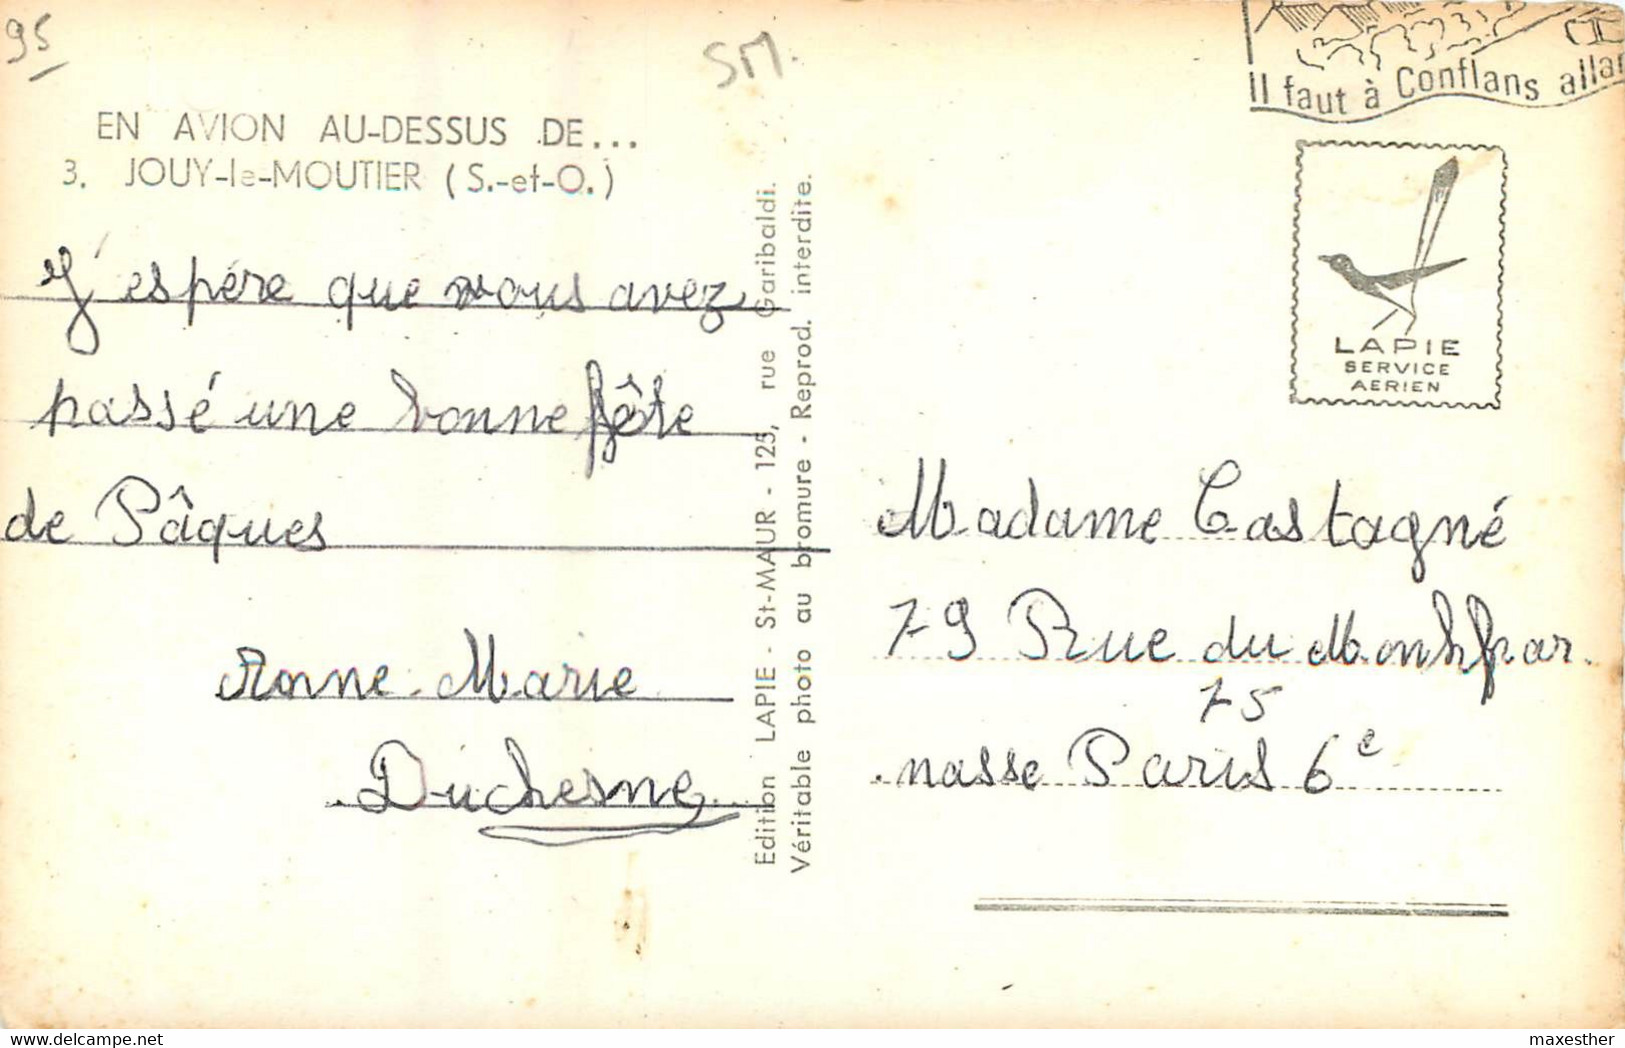 95
SM.
Il faut à Conflans allar
EN AVION AU-DESSUS DE...
3. JOUY-le-MOUTIER (S.-et-O.)
J'espére que vous avez
passé une bonne fête
de Pâques
Anne-Marie
Duchesne
Edition LAPIE - St-MAUR - 125, rue Garibaldi.
Véritable photo au bromure - Reprod. interdite.
LAPIE
SERVICE
AERIEN
Madame Castagné
79 Rue du Montpar.
75
nasse Paris 6e
maxesther